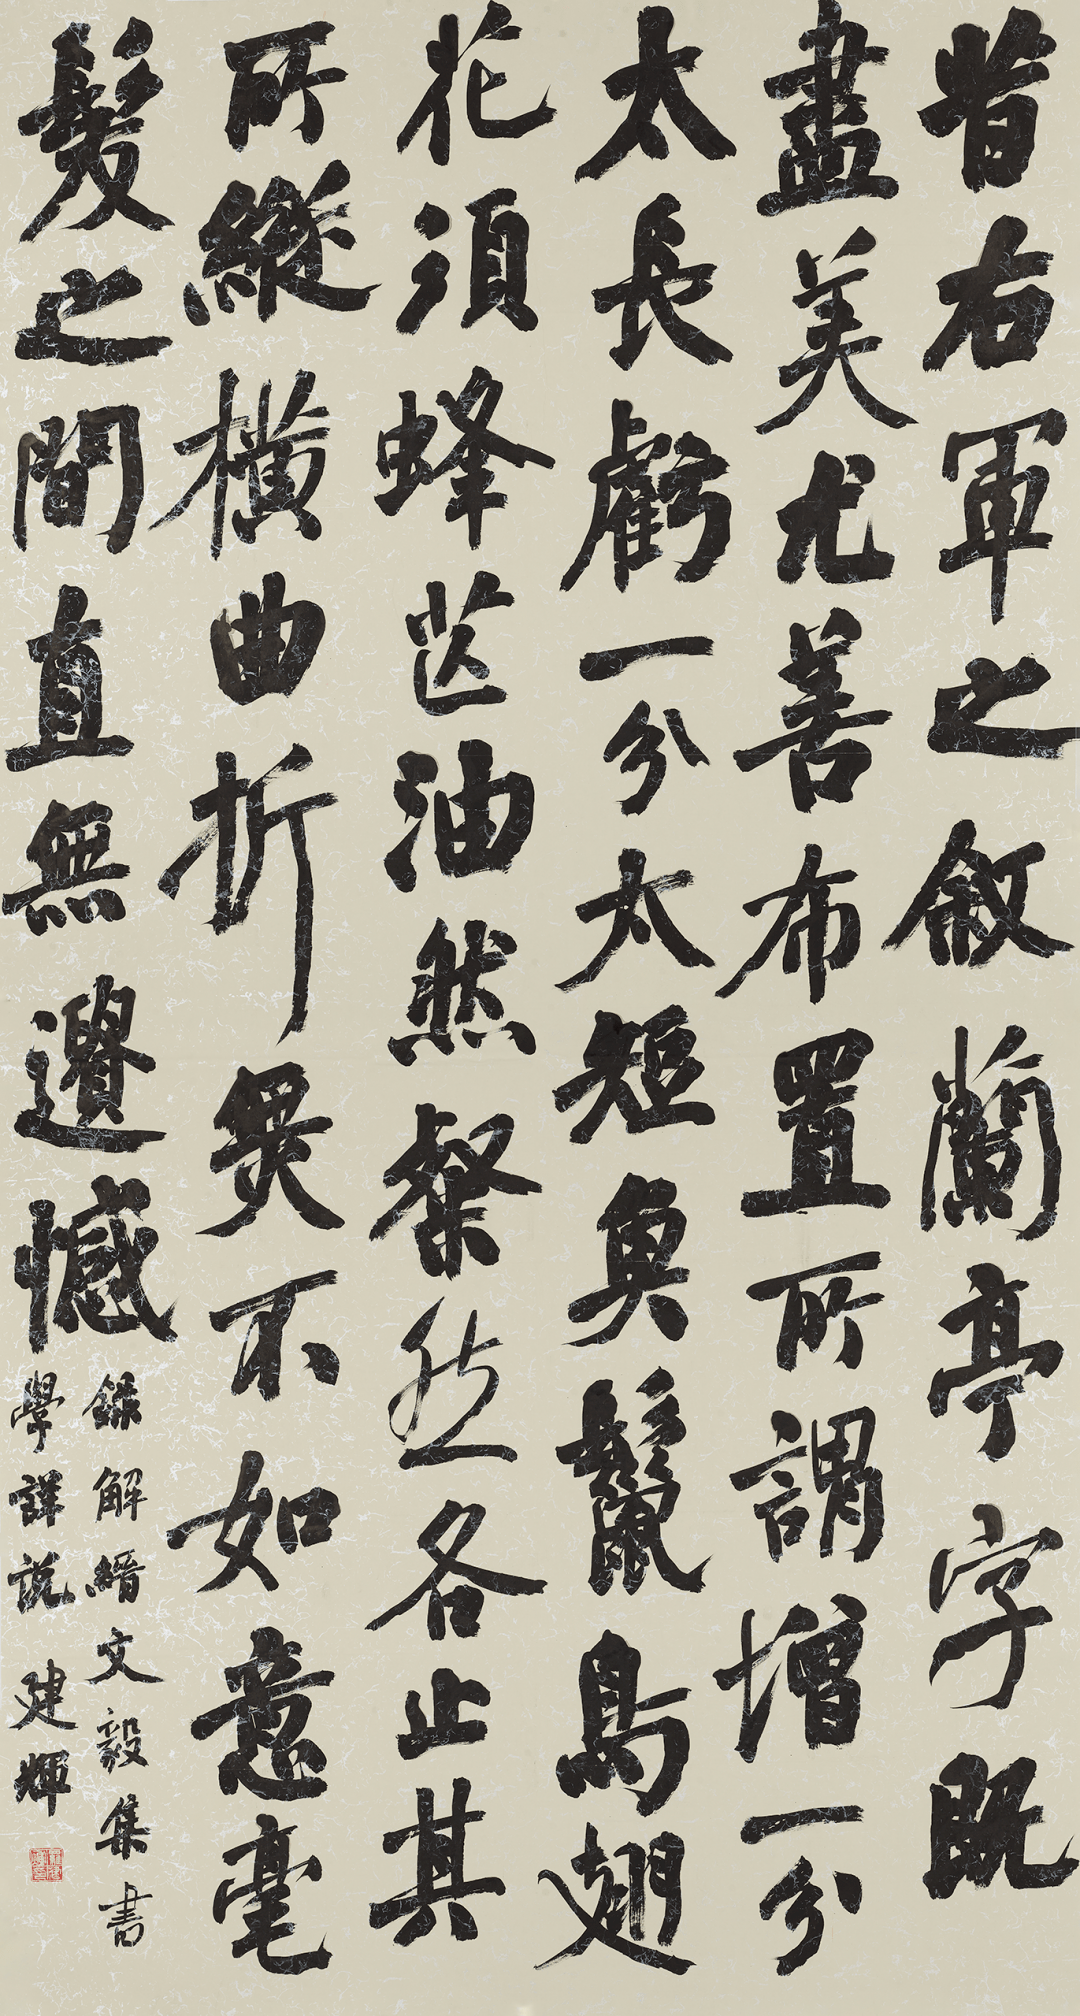 昔右軍之敘蘭亭字既
盡美尤善布置所謂增一分
太長虧一分太短魚鬣鳥翅
花須蜂芒油然粲然各止其
所縱橫曲折無不如意毫
髮之間直無遺憾
錄解縉文毅集書
學詳說 建輝